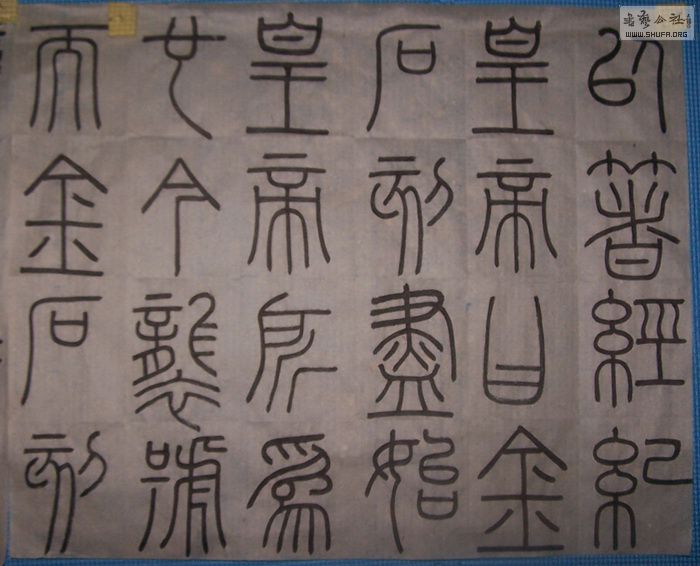 以著經紀
皇帝曰金
石刻盡始
皇帝所為
也今襲號
而金石刻
書藝公社
WWW.SHUFA.ORG